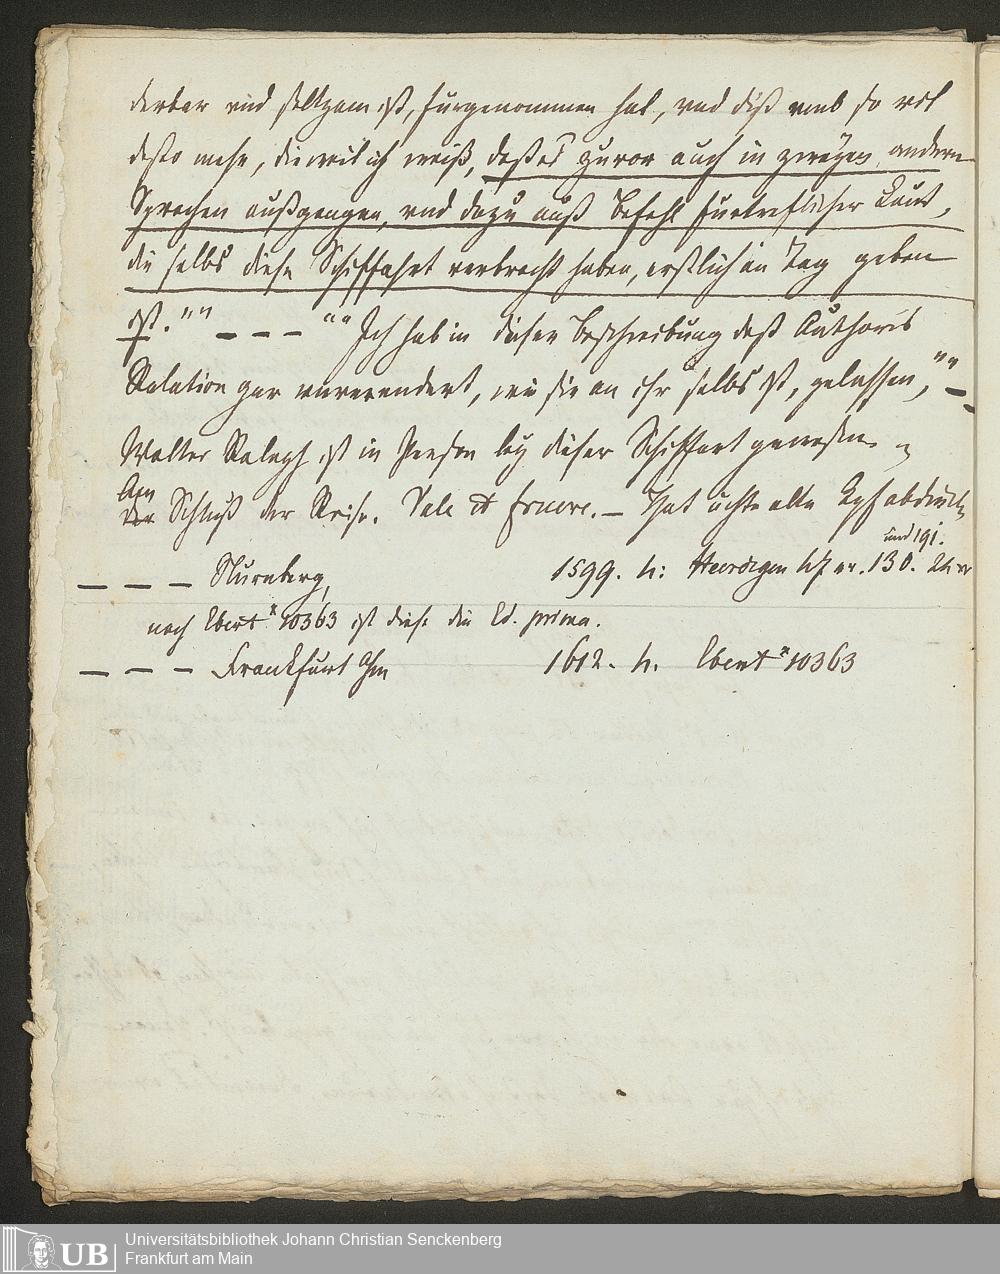 derbar und seltzam ist, furgenommen hat, vnd diß vmb so vil
desto mehr, dieweil ich weiß, daß es zuvor auch in zweyen andern
Sprachen außgangen, vnd dazu auß Befehl furtreflicher Leut,
die selbs diese Schiffahrt verbracht haben, erstlich an Tag geben
ist."" – – – "" Ich hab in dieser Beschreibung deß Authoris
Relation gar unverendert, wie sie an ihr selbs ist, gelassen,"" –
Walter Ralegh ist in Person bey dieser Schiffart gewesen
Am
Schluß der Reise. Vale et fruere. – Hat achte alte Kpfabdruck
und 191.
– – – Nurnberg, 1599. 4: Heerdegen 47 nr. 130. 24 xr
nach Ebert * 10363 ist diese die Ed. prima.
– – – Frankfurt a/m 1612. 4. Ebert * 10363
UB
Universitätsbibliothek Johann Christian Senckenberg
Frankfurt am Main